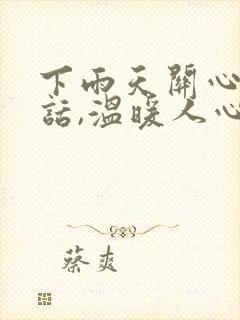 下雨天關心
話,溫暖人心
蔡爽